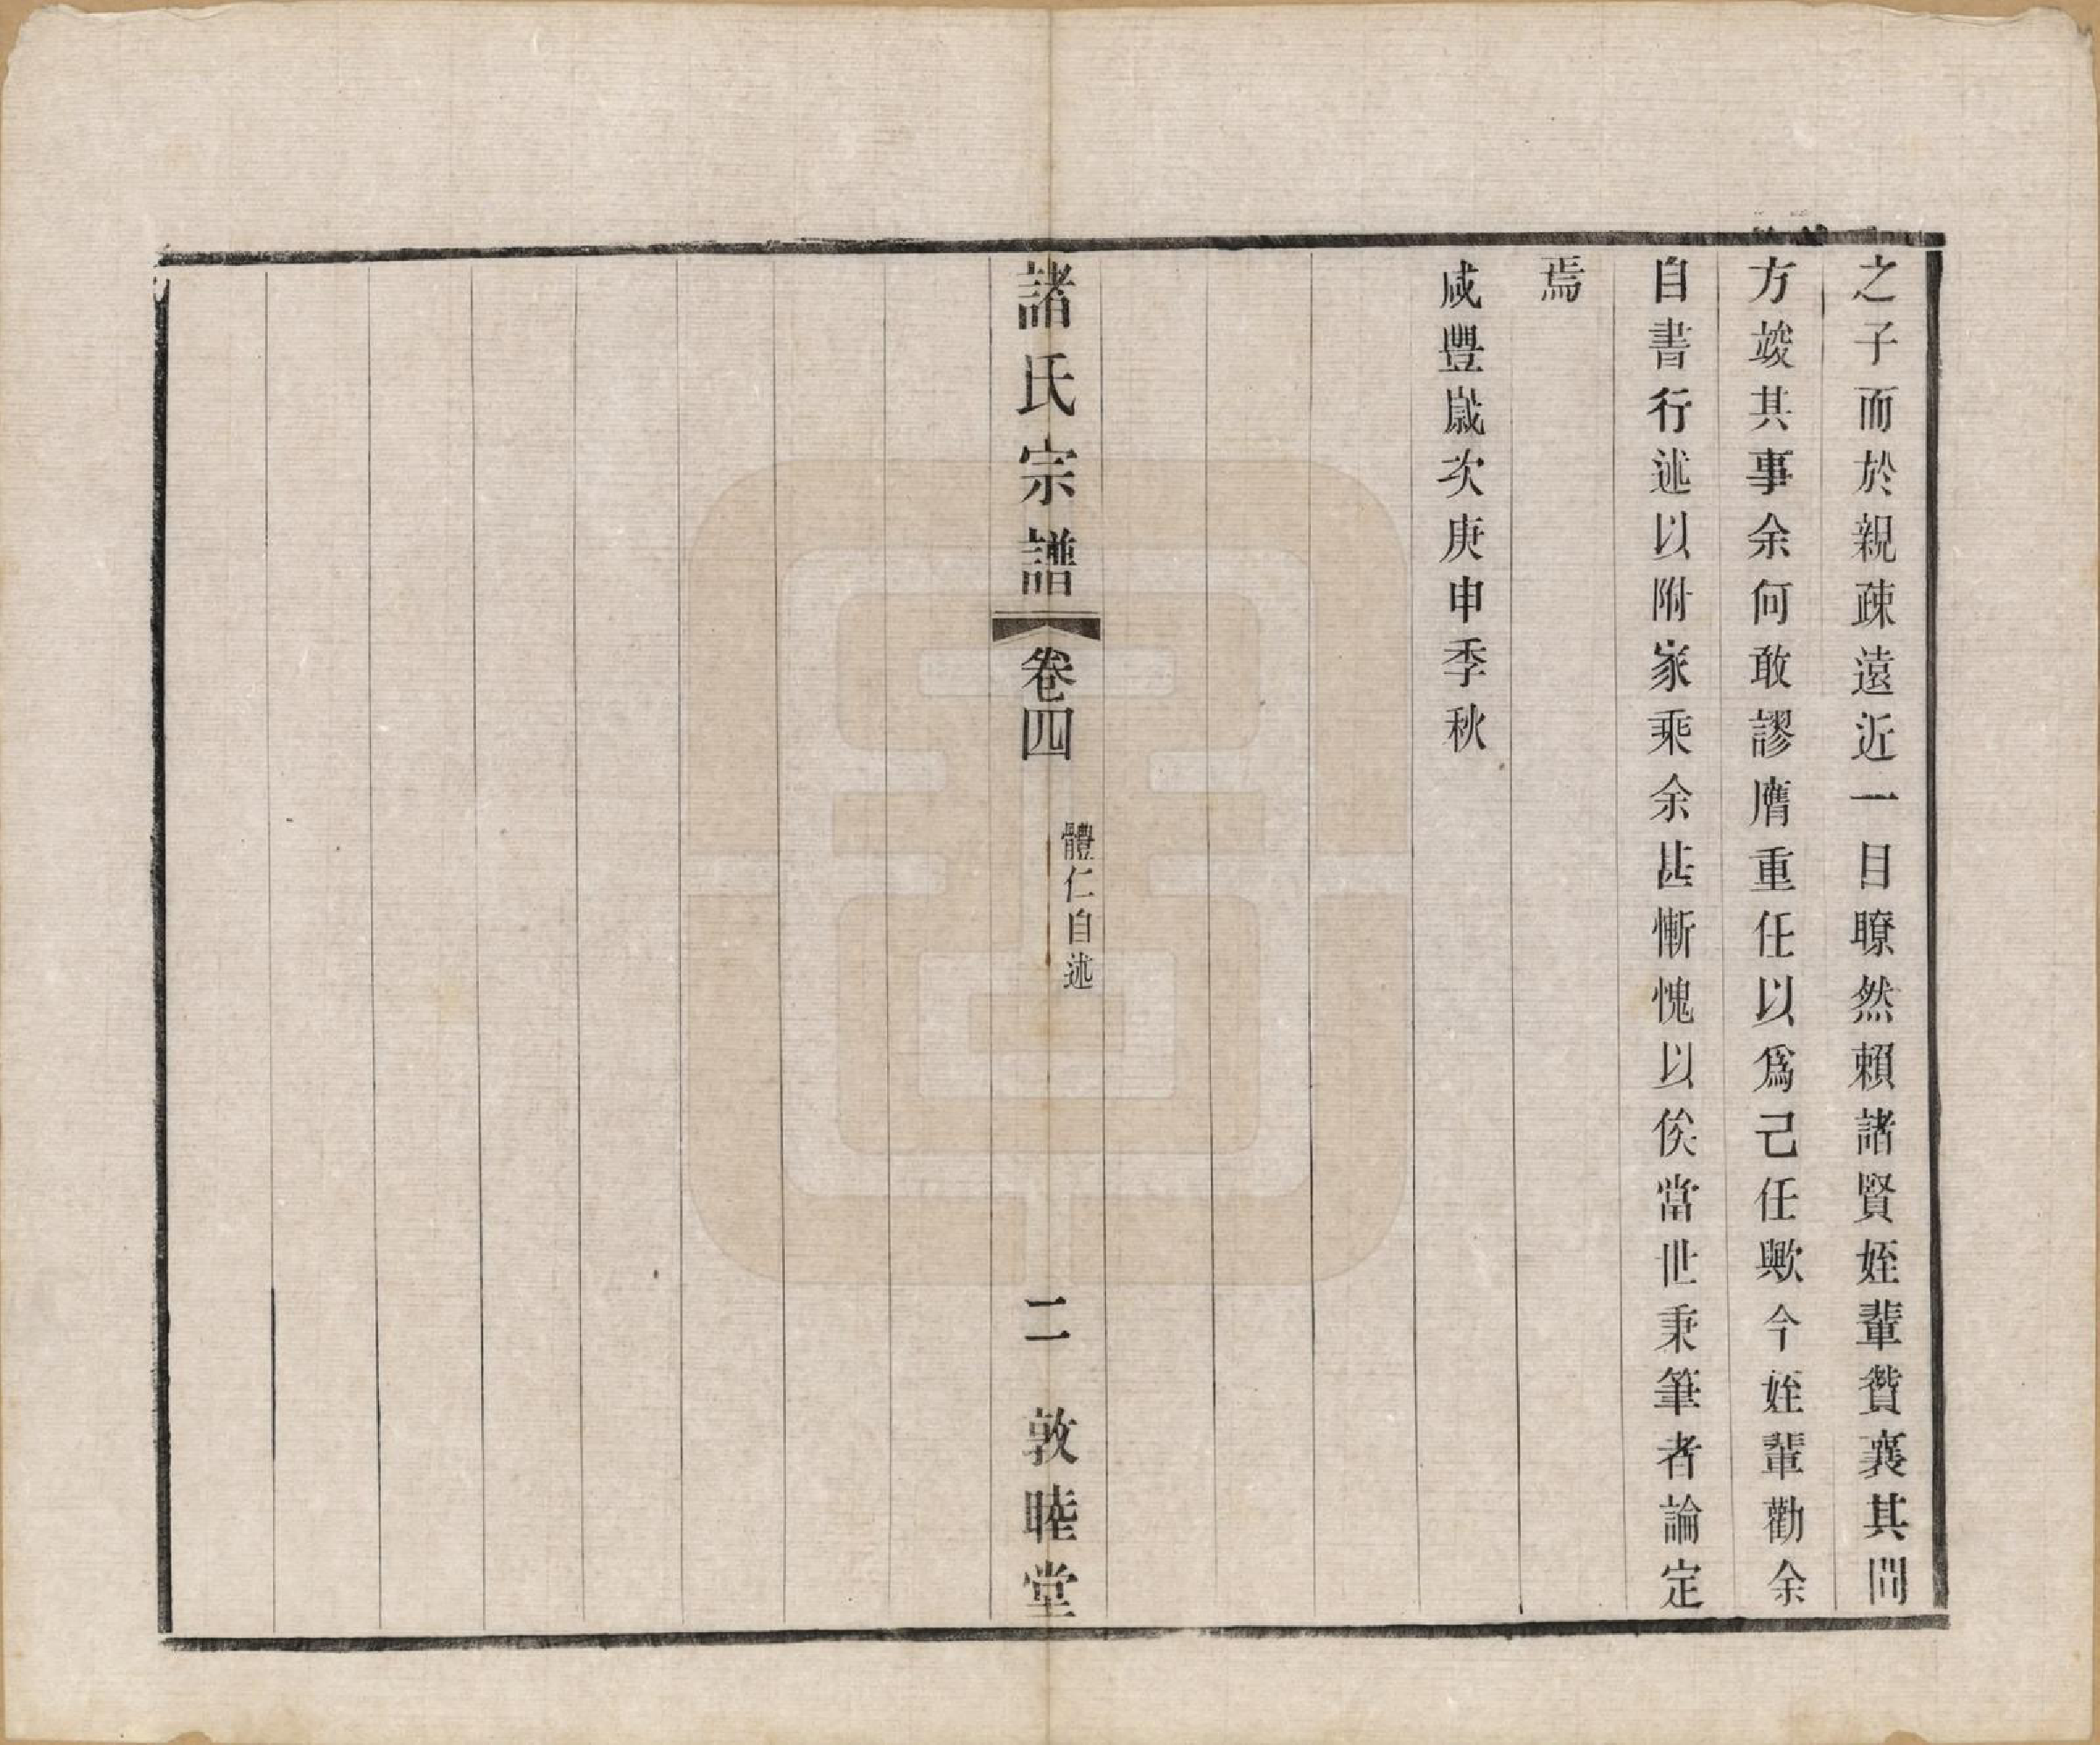 之子而於親疎遠近一目瞭然賴諸賢姪輩贊襄其間
方竣其事余何敢謬膺重任以爲己任歟今姪輩勸余
自書行述以附家乘余甚慚愧以俟當世秉筆者論定
焉
咸豐歲次庚申季秋
諸氏宗譜
卷四
體仁自述
二
敦睦堂